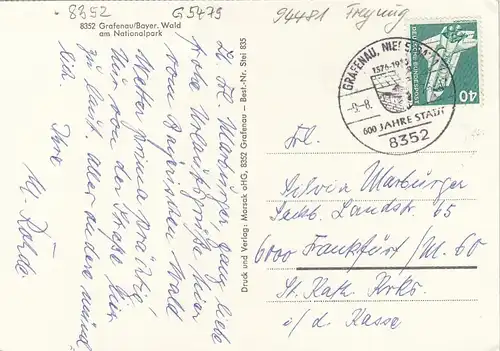 8352
G5479
94481 Freyung
8352 Grafenau/Bayer. Wald
am Nationalpark
Lb. Frl. Marburger, ganz liebe
frohe Urlaubsgrüße hier
vom Bayrischen Wald
Wetter prima
Nur von der Straße hier
zu laut. Alles andere wunder-
Ihre
Druck und Verlag: Morsak oHG, 8352 Grafenau — Best.-Nr. Stei 835
GRAFENAU, NIEDERBAYERN
1376-19
-9.-8.
600 JAHRE STADT
8352
DEUTSCHE BUNDESPOST
40
Frl.
Silvia Marburger
Sachs. Landstr.
65
6000 Frankfurt/M. 60
St. Kath. Krks.
i/d. Kasse